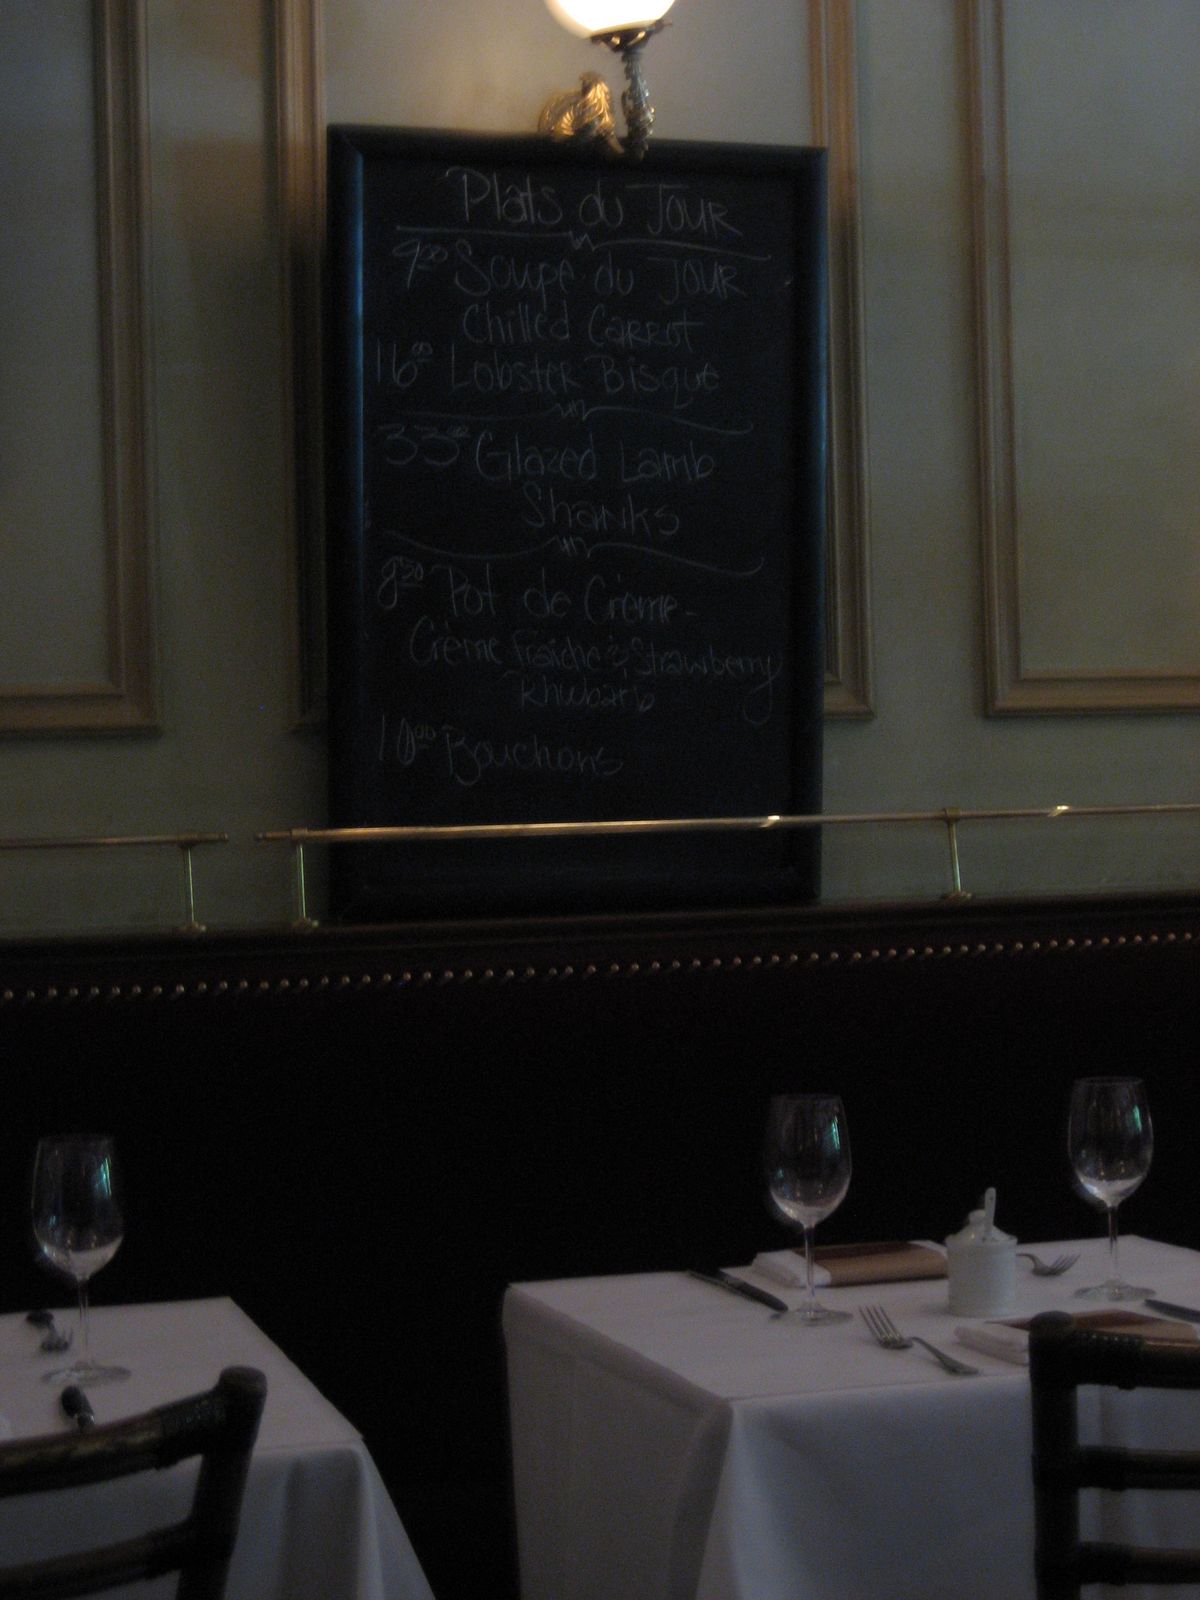 Plats du Jour
9⁰⁰ Soupe du Jour
Chilled Carrot
16⁰⁰ Lobster Bisque
33⁰⁰ Glazed Lamb
Shanks
8⁵⁰ Pot de Crème-
Crème fraîche & Strawberry
Rhubarb
10⁰⁰ Bouchons